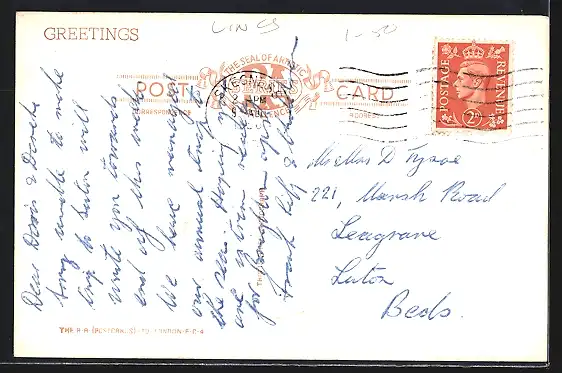 GREETINGS
LINCS
1-50
THE SEAL OF ARTISTIC
EXCELLENCE
POST
CARD
CORRESPONDENCE
ADDRESS
SKEGNESS
PM
POSTAGE
REVENUE
2D
Dear Doris & Derek
Sorry unable to make
trip to Luton will
write you towards
end of this week
We have managed
our annual trip
the sea. Hoping you
are
for
Frank
Mr & Mrs D Tysoe
221, Marsh Road
Leagrave
Luton
Beds.
THE R.A. (POSTCARDS) LTD. LONDON. E.C.4